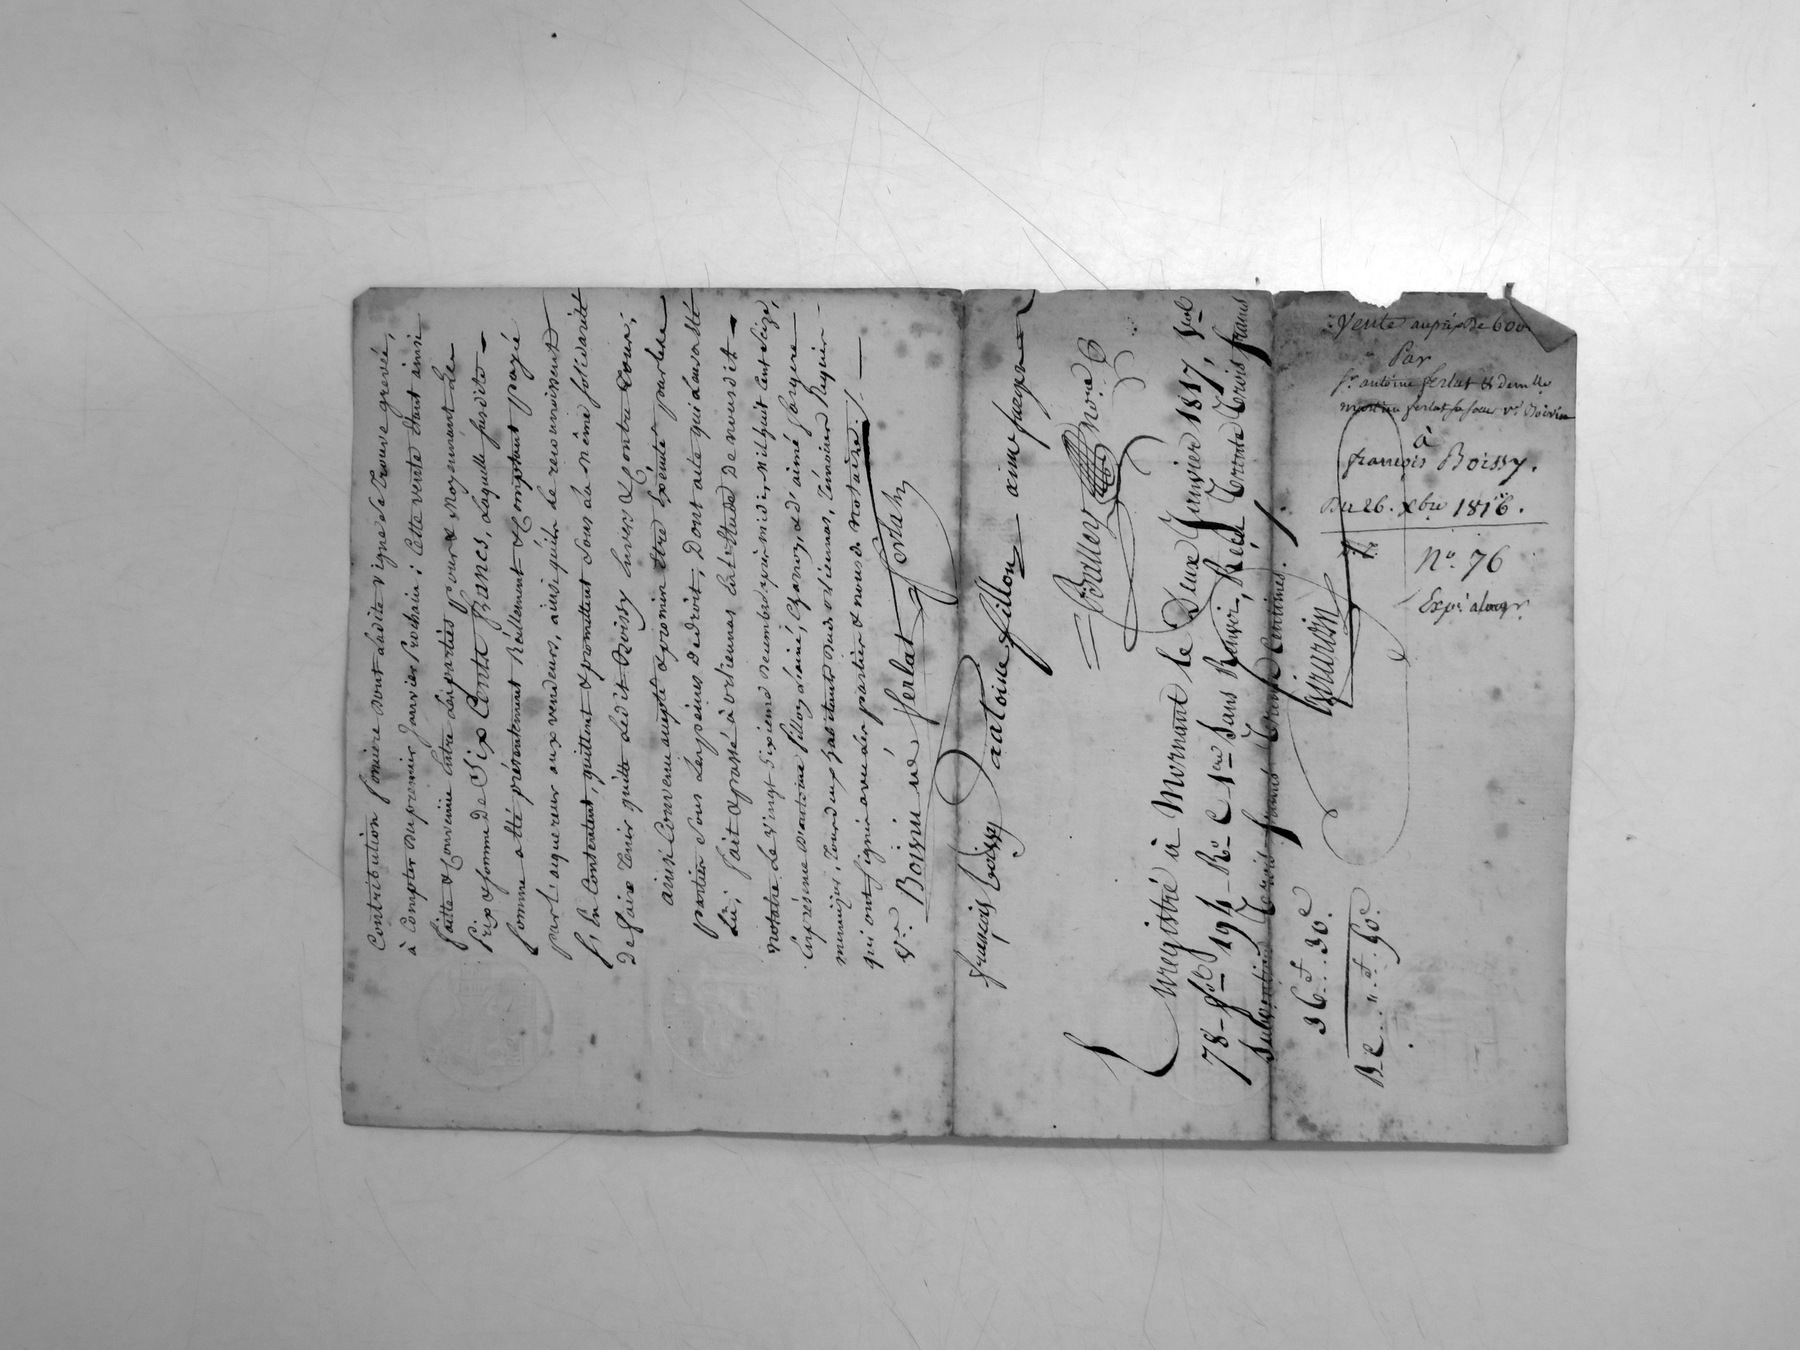 Contribution fonciere dont ladite vigne se trouve grevée,
à Compter du premier Janvier prochain; Cette vente étant ainsi
faitte & Convenüe Entre les parties pour & Moyennant le
Prix & somme de Six Cents francs, Laquelle susdite
somme a été présentement Réellement & Comptant payée
par l'acquereur aux vendeurs, ainsi qu'ils le reconnoissent
s'en Contentent, quittent & promettent sous la même solidarité
de faire tenir quitte ledit Boissy Envers & Contre tous;
ainsi Convenu accepté & promis être Exécuté par les
parties sous les peines de droit; Dont acte qui Leur a été
Lu; fait & passé à Orliennas En l'étude de nousdit
notaire Le Vingt Sixieme décembre après midi, Mil huit Cent Seize,
En présence d'antoine fillon & aimé
menuisier, tous deux habitants dudit Orliennas, témoins Requis
qui ont signé avec les parties & nousdit Notaire./.
Vve. Boisni né ferlat ferlat
françois boissy antoine fillon
Nore.
Enregistré à Mornant le Deux Janvier 1817, vol
78 - fol 194 - Ro C 1re Sans Renvoi, Reçu Trente Trois francs
Subvention Trois francs Trente Centimes.
36f..30c.
Vente au prix de 600
Par
Sr. antoine ferlat & demlle
ferlat sa soeur ve
à
françois Boissy.
Du 26. xbre 1816.
No. 76